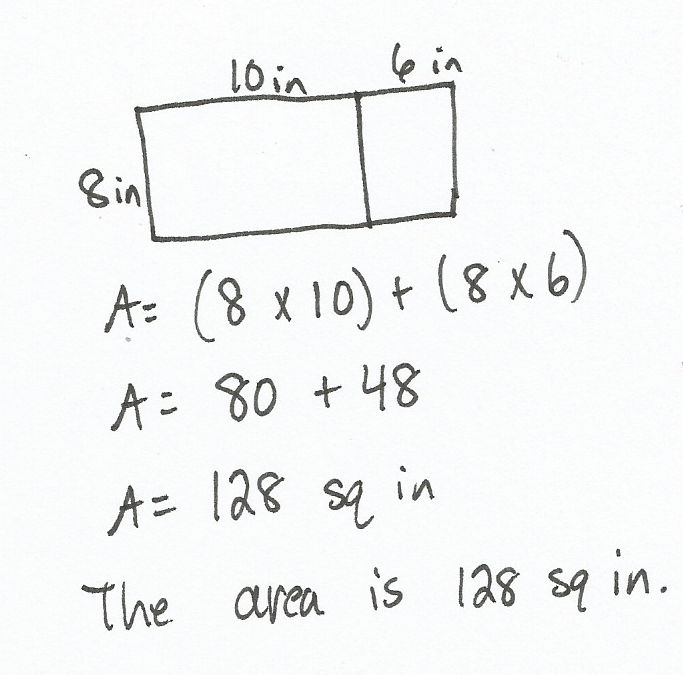 10 in 6 in
8 in
A= (8 x 10) + (8 x 6)
A= 80 + 48
A= 128 sq in
The area is 128 sq in.